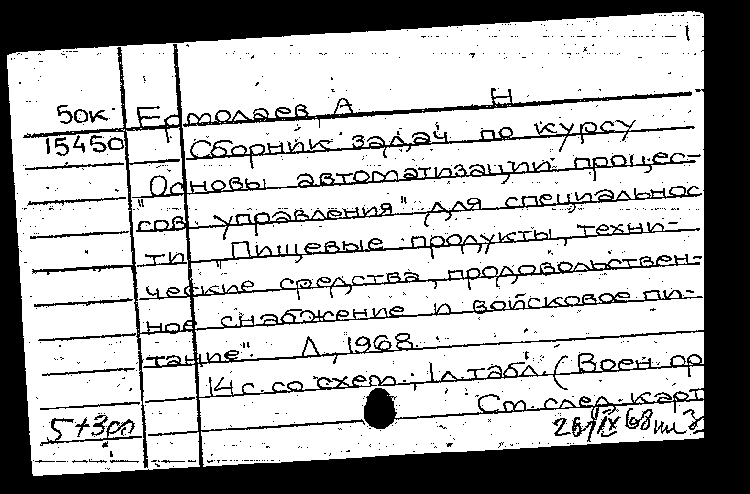 1
50к Ермолаев, А Н
15450 Сборник задач по курсу
"Основы автоматизации процес-
сов управления" для специальнос
ти "Пищевые продукты, техни-
ческие средства, продовольствен-
ное снабжение и войсковое пи-
тание". Л., 1968.
14 с. со схем.; 1 л. табл. (Воен. ор
См. след. карт
5+3рл